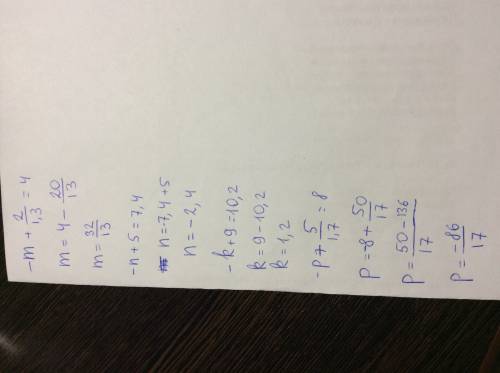 -m + 2/1,3 = 4
m = 4 - 20/13
m = 32/13
-n + 5 = 7,4
n = 7,4 + 5
n = -2,4
-k + 9 = 10,2
k = 9 - 10,2
k = 1,2
-p + 5/1,7 = 8
p = -8 + 50/17
p = 50 - 136/17
p = -86/17